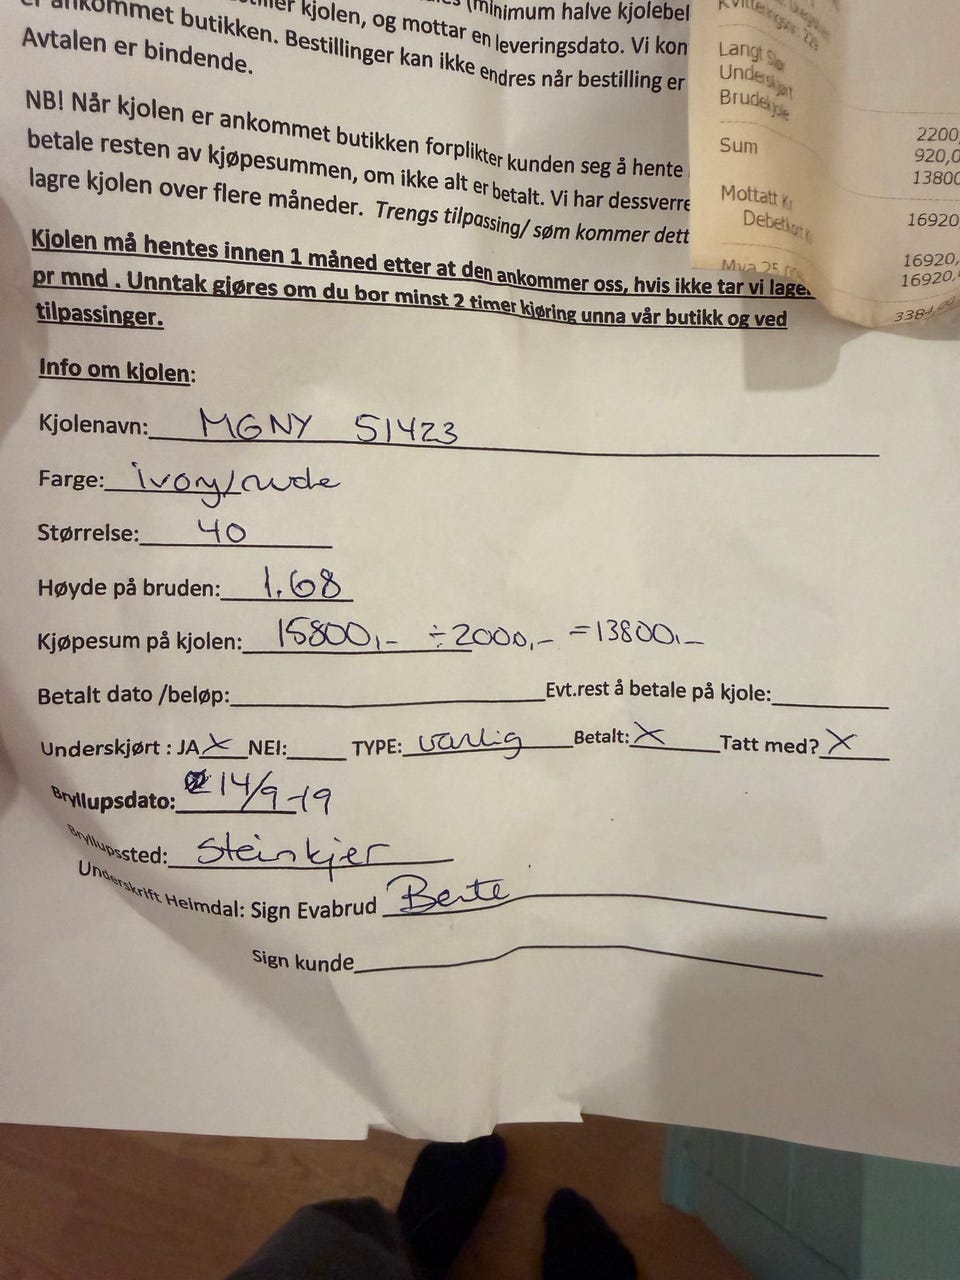 kjolen, og mottar en leveringsdato. Vi kon
(minimum halve kjolebel
er ankommet butikken. Bestillinger kan ikke endres når bestilling er
Avtalen er bindende.
NB! Når kjolen er ankommet butikken forplikter kunden seg å hente
betale resten av kjøpesummen, om ikke alt er betalt. Vi har dessverre
lagre kjolen over flere måneder. Trengs tilpassing/ søm kommer dett
Kjolen må hentes innen 1 måned etter at den ankommer oss, hvis ikke tar vi lager
pr mnd . Unntak gjøres om du bor minst 2 timer kjøring unna vår butikk og ved
tilpassinger.
Info om kjolen:
Kjolenavn: MGNY 51423
Farge: ivory/nude
Størrelse: 40
Høyde på bruden: 1.68
Kjøpesum på kjolen: 15800,- ÷2000,- =13800,-
Betalt dato /beløp: Evt.rest å betale på kjole:
Underskjørt : JA X NEI: TYPE: vanlig Betalt: X Tatt med? X
Bryllupsdato: 14/9-19
Bryllupssted: Steinkjer
Underskrift Heimdal: Sign Evabrud Bente
Sign kunde
Kvitteringsnr.: 229
Langt Slør 2200,
Underskjørt 920,0
Brudekjole 13800
Sum 16920
Mottatt Kr 16920,
Debetkort Kr 16920,
Mva 25,00